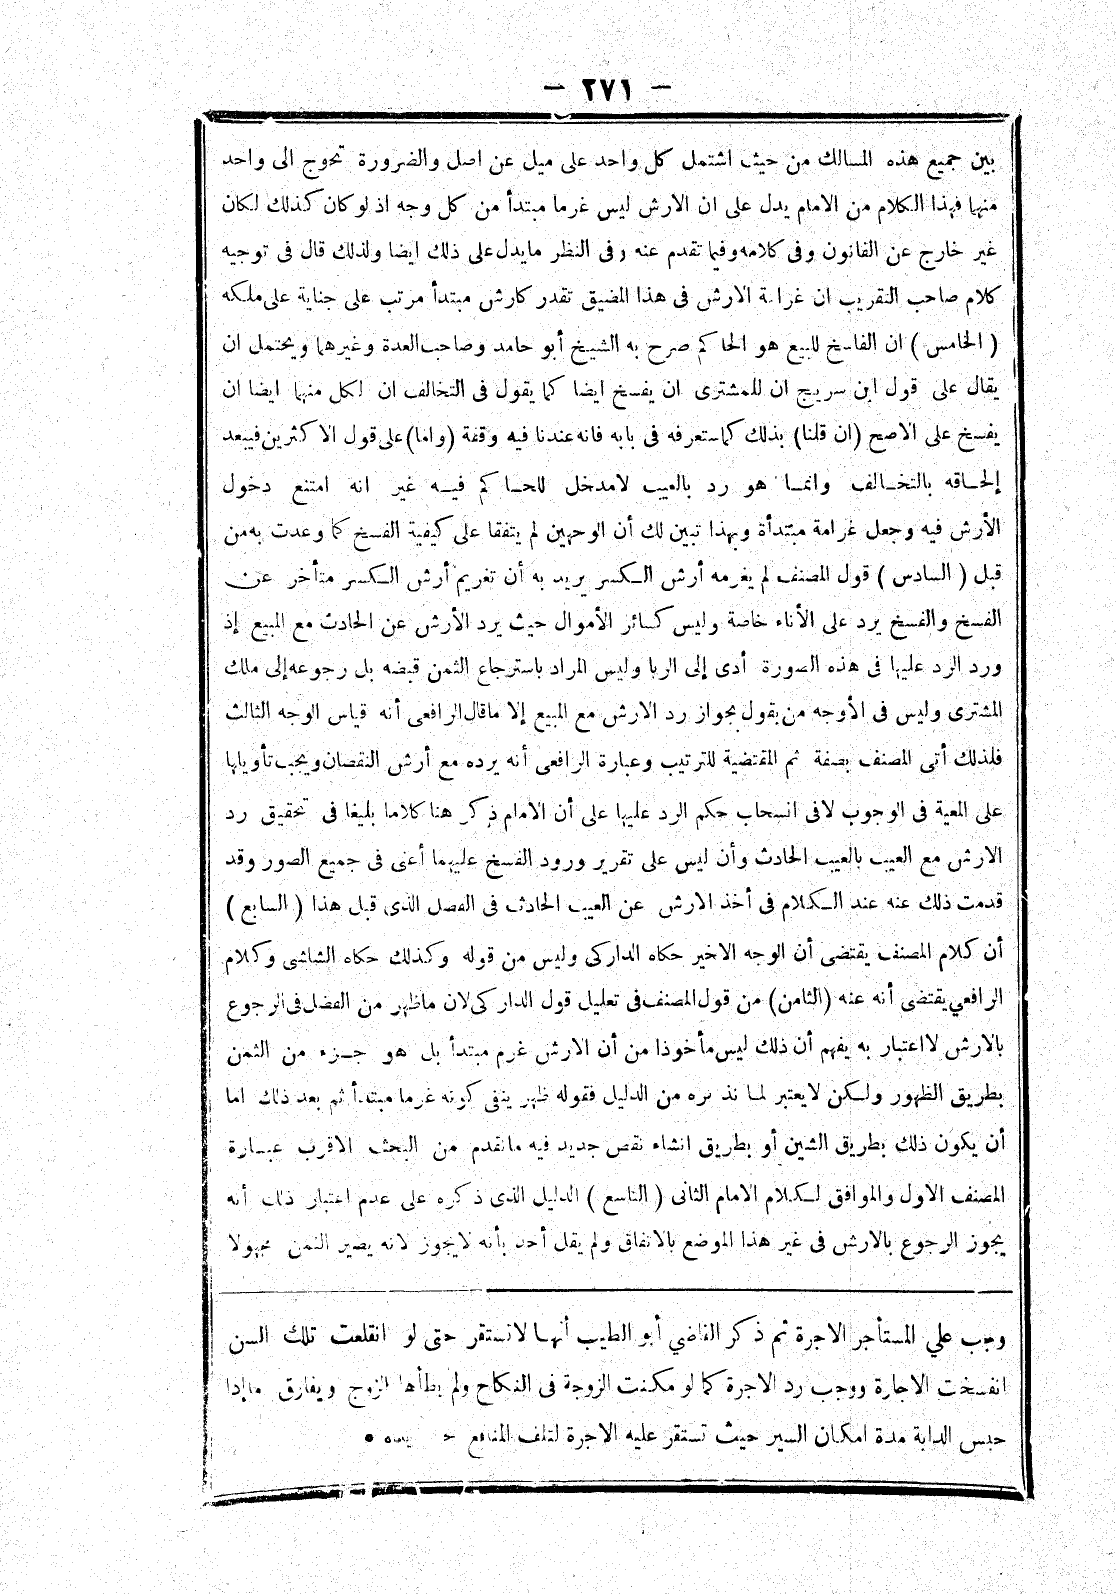 — ٢٧١ —
بين جميع هذه المسالك من حيث اشتمل كل واحد على ميل عن اصل والضرورة تحوج الى واحد
منها فهذا الكلام من الامام يدل على ان الارش ليس غرما مبتدأ من كل وجه اذ لو كان كذلك لكان
غير خارج عن القانون وفى كلامه وفيما تقدم عنه وفى النظر مايدل على ذلك ايضا ولذلك قال فى توجيه
كلام صاحب التقريب ان غرامة الارش فى هذا المضيق تقدر كارش مبتدأ مرتب على جناية على ملكه
( الخامس ) ان الفاسخ للبيع هو الحاكم صرح به الشيخ أبو حامد وصاحب العدة وغيرهما ويحتمل ان
يقال على قول ابن سريج ان للمشترى ان يفسخ ايضا كما يقول فى التخالف ان لكل منهما ايضا ان
يفسخ على الاصح (ان قلنا) بذلك كما ستعرفه فى بابه فانه عندنا فيه وقفة (واما) على قول الاكثرين فيبعد
إلحـاقه بالتخـالف وانمـا هو رد بالعيب لامدخل للحـاكم فيـه غير انه امتنع دخول
الأرش فيه وجعل غرامة مبتدأة وبهذا تبين لك أن الوجهين لم يتفقا على كيفية الفسخ كما وعدت به من
قبل ( السادس ) قول المصنف لم يغرمه أرش الـكسر يريد به أن تغريم أرش الـكسر متأخر عن
الفسخ والفسخ يرد على الأناء خاصة وليس كسائر الأموال حيث يرد الأرش عن الحادث مع المبيع إذ
ورد الرد عليها فى هذه الصورة أدى إلى الربا وليس المراد باسترجاع الثمن قبضه بل رجوعه إلى ملك
المشترى وليس فى الأوجه من يقول بجواز رد الارش مع المبيع إلا ماقال الرافعى أنه قياس الوجه الثالث
فلذلك أتى المصنف بصفة ثم المقتضية للترتيب وعبارة الرافعى أنه يرده مع أرش النقصان ويجب تأويلها
على المعية فى الوجوب لافى انسحاب حكم الرد عليها على أن الامام ذكر هنا كلاما بليغا فى تحقيق رد
الارش مع العيب بالعيب الحادث وأن ليس على تقرير ورود الفسخ عليهما أعنى فى جميع الصور وقد
قدمت ذلك عنه عند الـكلام فى أخذ الارش عن العيب الحادث فى الفصل الذى قبل هذا ( السابع )
أن كلام المصنف يقتضى أن الوجه الاخير حكاه الداركى وليس من قوله وكذلك حكاه الشاشى وكلام
الرافعي يقتضى أنه عنه (الثامن) من قول المصنف فى تعليل قول الداركى لان ماظهر من الفضل فى الرجوع
بالارش لا اعتبار به يفهم أن ذلك ليس مأخوذا من أن الارش غرم مبتدأ بل هو جـزء من الثمن
بطريق الظهور ولـكن لايعتبر لما نذكره من الدليل فقوله ظهر ينفى كونه غرما مبتدأ ثم بعد ذلك اما
أن يكون ذلك بطريق الشين أو بطريق انشاء نقص جديد فيه ماتقدم من البحث الاقرب عبـارة
المصنف الاول والموافق لـكلام الامام الثانى ( التاسع ) الدليل الذى ذكره على عدم اعتبار ذلك أنه
يجوز الرجوع بالارش فى غير هذا الموضع بالاتفاق ولم يقل أحد بأنه لايجوز لانه يصير الثمن مجهولا
وجب علي المستأجر الاجرة ثم ذكر القاضي أبو الطيب أنهـا لاتستقر حتى لو انقلعت تلك السن
انفسخت الاجارة ووجب رد الاجرة كما لو مكنت الزوجة فى النكاح ولم يطأها الزوج ويفارق ماإذا
حبس الدابة مدة امكان السير حيث تستقر عليه الاجرة لتلف المنافع